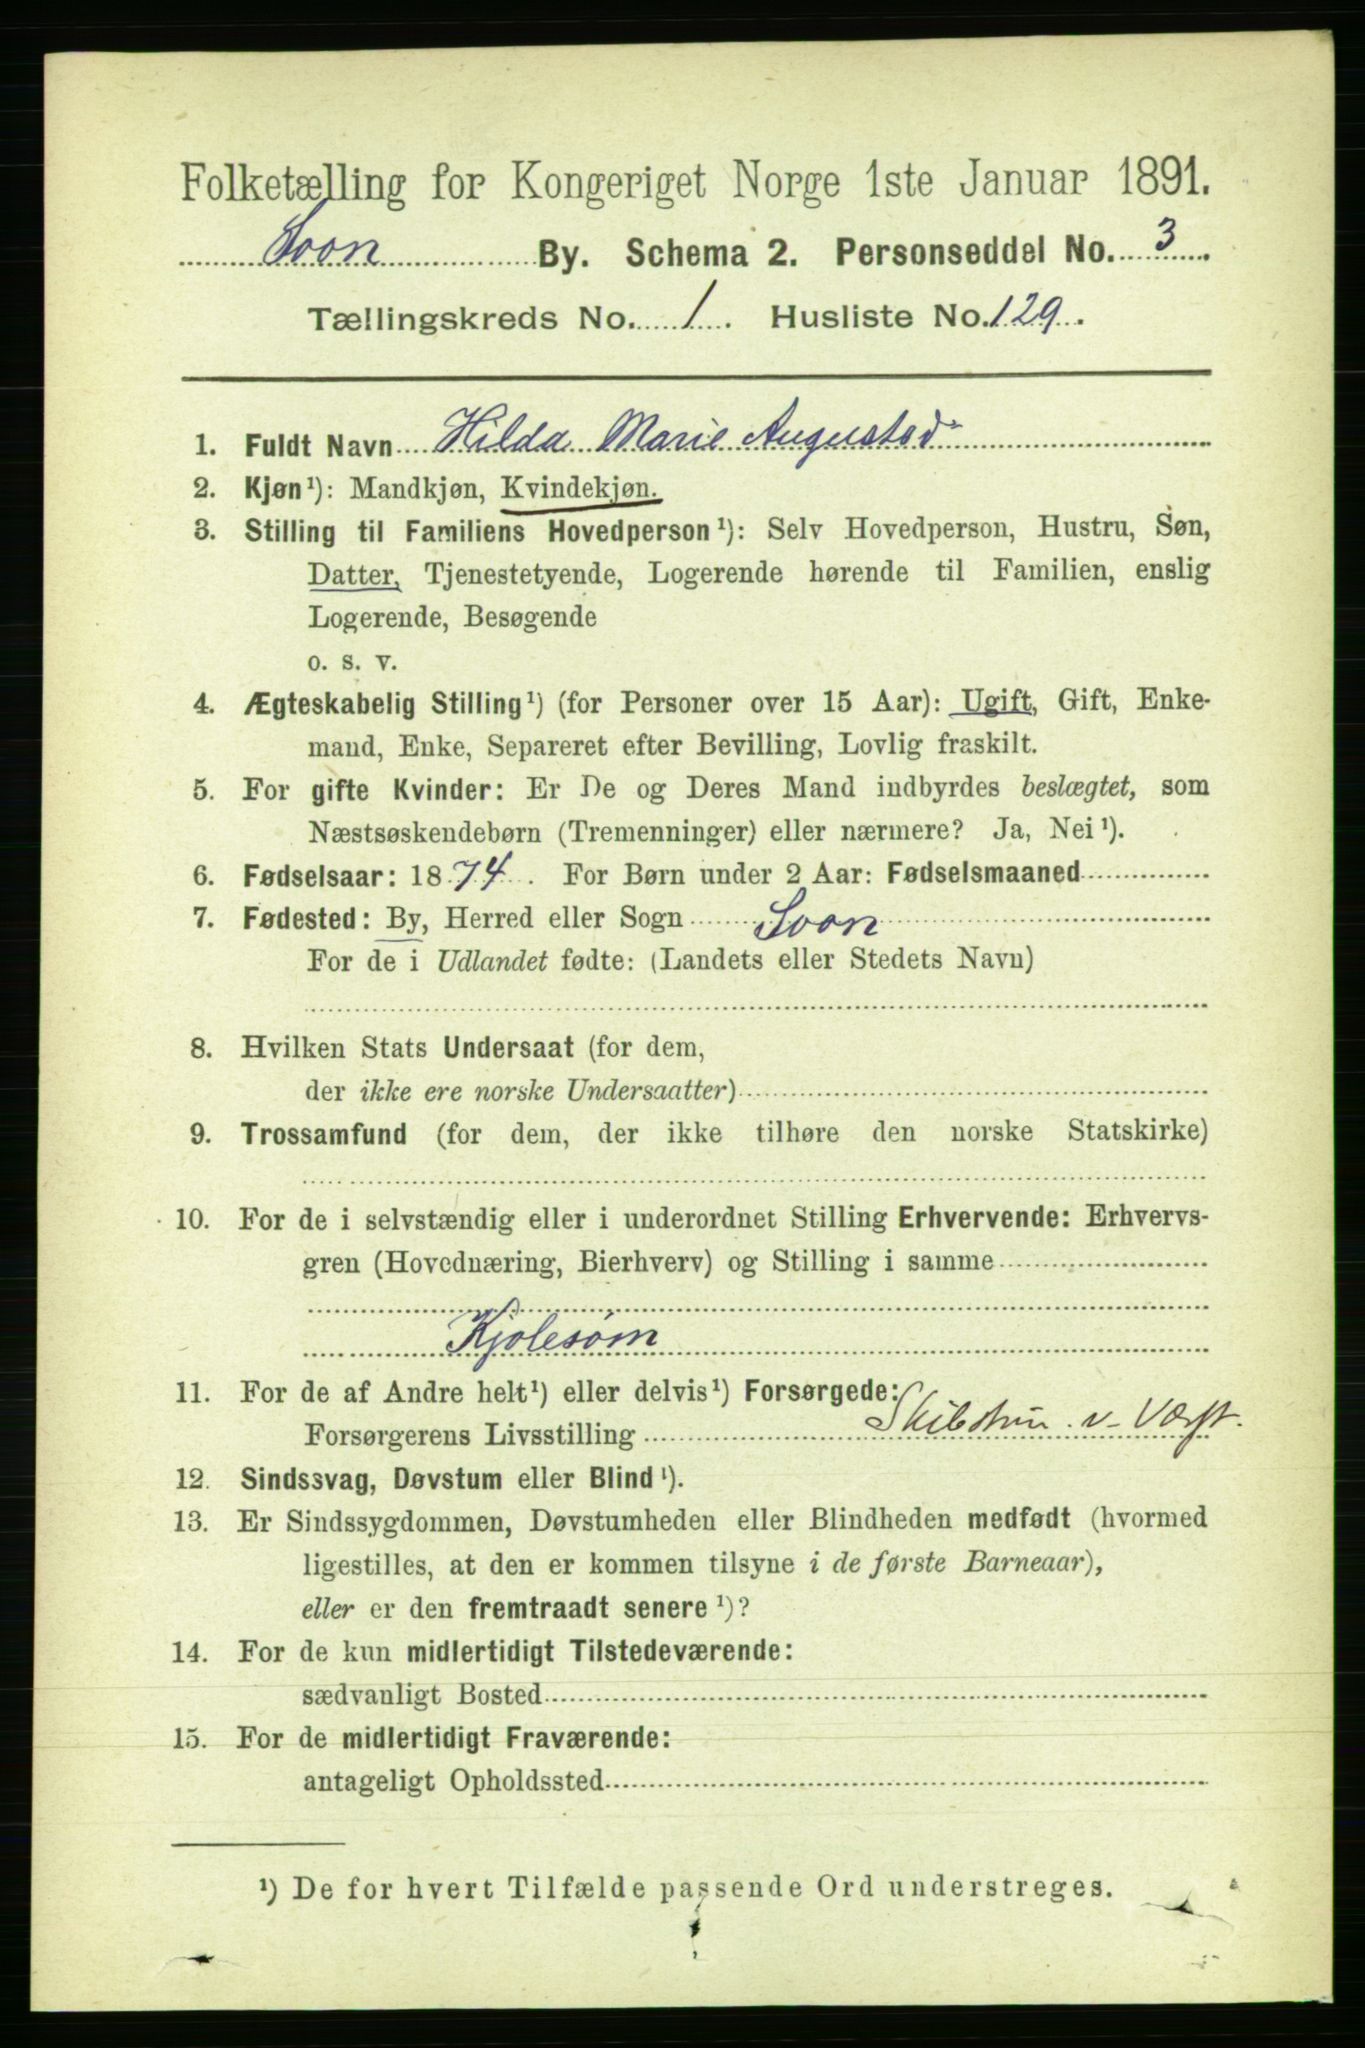 Folketælling for Kongeriget Norge 1ste Januar 1891.
Soon By. Schema 2. Personseddel No. 3.
Tællingskreds No. 1. Husliste No. 129.
1. Fuldt Navn Hilda Marie Augustsd
2. Kjøn¹): Mandkjøn, Kvindekjøn.
3. Stilling til Familiens Hovedperson¹): Selv Hovedperson, Hustru, Søn,
Datter, Tjenestetyende, Logerende hørende til Familien, enslig
Logerende, Besøgende
o. s. v.
4. Ægteskabelig Stilling¹) (for Personer over 15 Aar): Ugift, Gift, Enke-
mand, Enke, Separeret efter Bevilling, Lovlig fraskilt.
5. For gifte Kvinder: Er De og Deres Mand indbyrdes beslægtet, som
Næstsøskendebørn (Tremenninger) eller nærmere? Ja, Nei¹).
6. Fødselsaar: 1874. For Børn under 2 Aar: Fødselsmaaned
7. Fødested: By, Herred eller Sogn Soon
For de i Udlandet fødte: (Landets eller Stedets Navn)
8. Hvilken Stats Undersaat (for dem,
der ikke ere norske Undersaatter)
9. Trossamfund (for dem, der ikke tilhøre den norske Statskirke)
10. For de i selvstændig eller i underordnet Stilling Erhvervende: Erhvervs-
gren (Hovednæring, Bierhverv) og Stilling i samme
Kjolesøm
11. For de af Andre helt¹) eller delvis¹) Forsørgede:
Forsørgerens Livsstilling Skibstøm. v. Værft.
12. Sindssvag, Døvstum eller Blind¹).
13. Er Sindssygdommen, Døvstumheden eller Blindheden medfødt (hvormed
ligestilles, at den er kommen tilsyne i de første Barneaar),
eller er den fremtraadt senere¹)?
14. For de kun midlertidigt Tilstedeværende:
sædvanligt Bosted
15. For de midlertidigt Fraværende:
antageligt Opholdssted
¹) De for hvert Tilfælde passende Ord understreges.